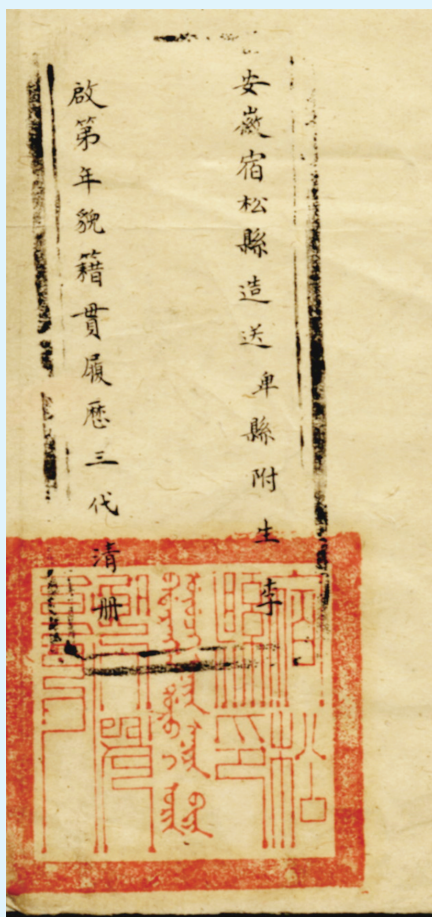 安徽宿松縣造送卑縣附生李
啟第年貌籍貫履歷三代清册
宿松
縣印